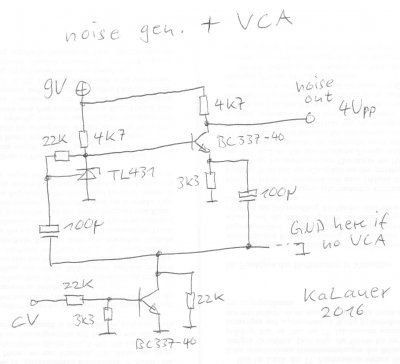 noise gen. + VCA
9V
4K7
noise
out
4Vpp
22K
4K7
BC337-40
TL431
3K3
100µ
100µ
GND here if
no VCA
22K
22K
CV
3K3
BC337-40
KaLauer
2016